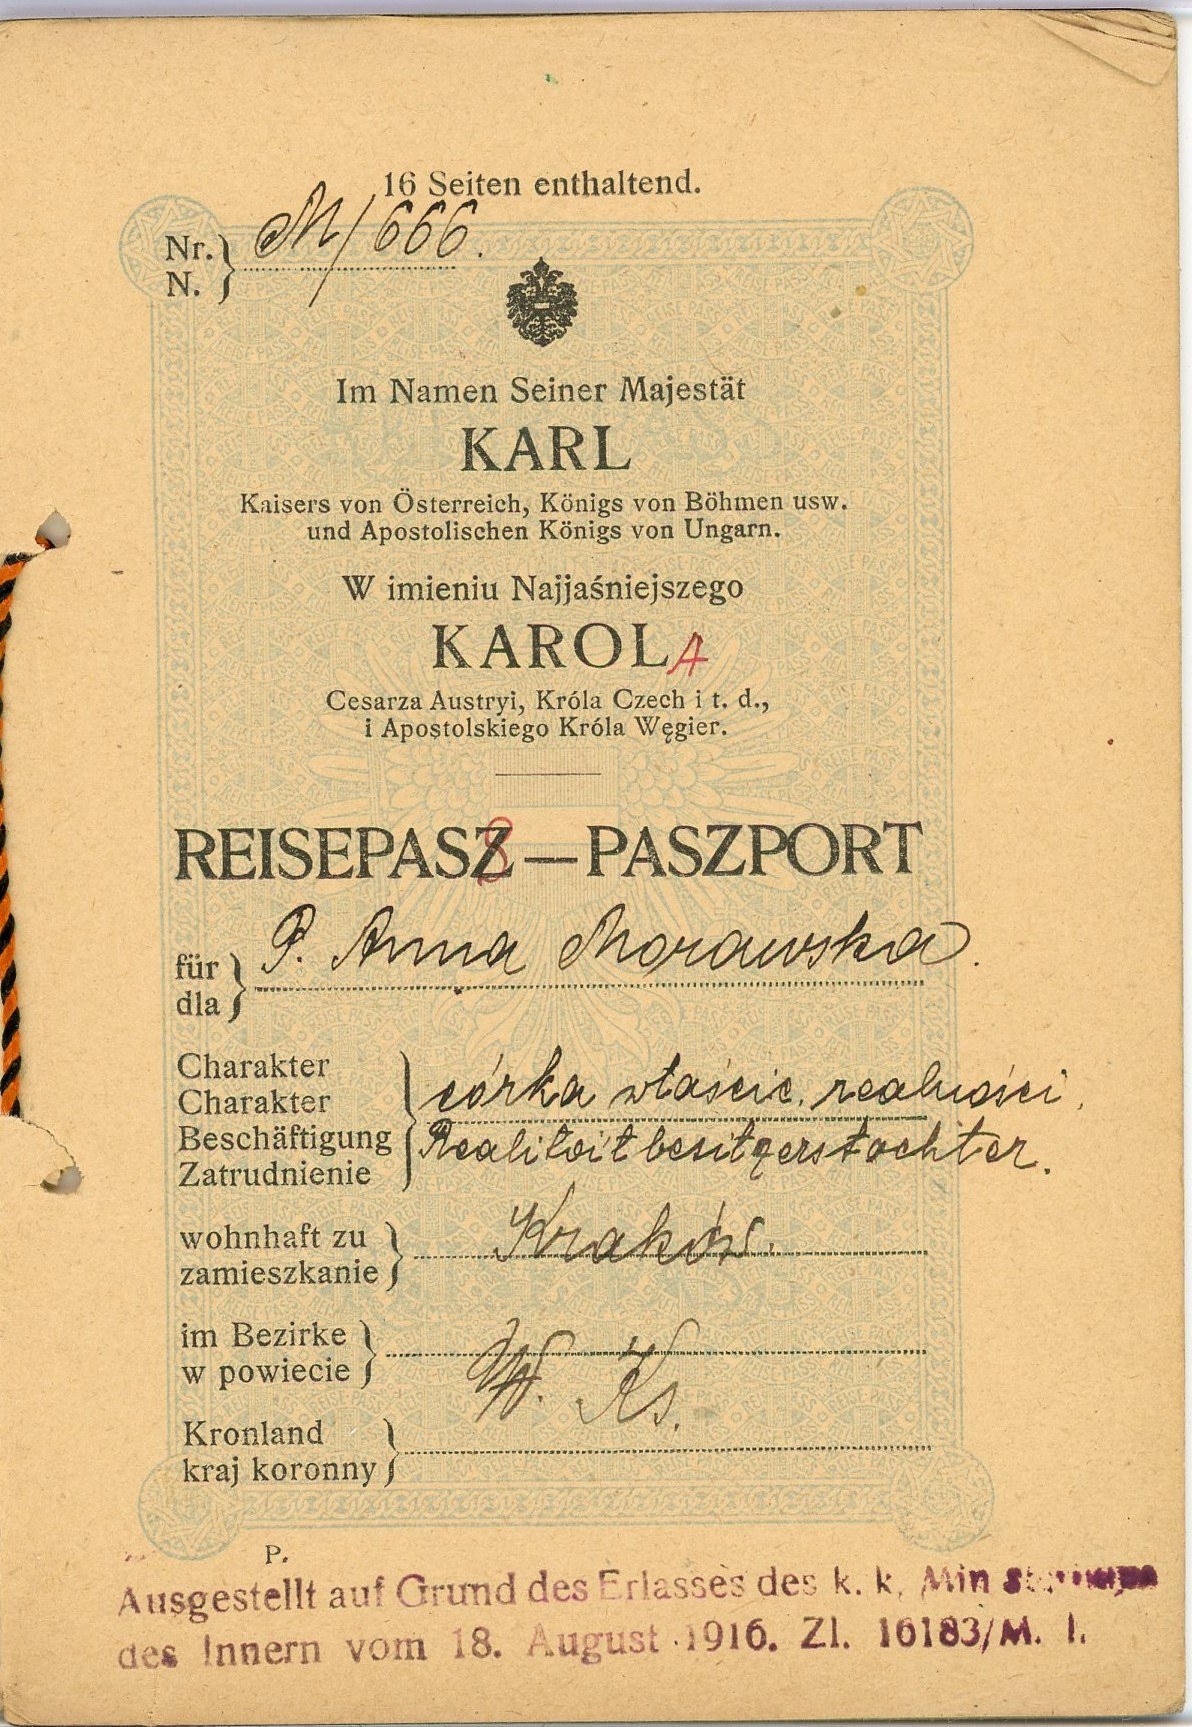 16 Seiten enthaltend.
Nr. M/666.
N.
Im Namen Seiner Majestät
KARL
Kaisers von Österreich, Königs von Böhmen usw.
und Apostolischen Königs von Ungarn.
W imieniu Najjaśniejszego
KAROLA
Cesarza Austryi, Króla Czech i t. d.,
i Apostolskiego Króla Węgier.
REISEPASS — PASZPORT
für P. Anna Morawska.
dla
Charakter
Charakter córka właścic. realności.
Beschäftigung Realitätbesitzerstochter.
Zatrudnienie
wohnhaft zu Kraków.
zamieszkanie
im Bezirke
w powiecie W. Ks.
Kronland
kraj koronny
P.
Ausgestellt auf Grund des Erlasses des k. k. Ministeriums
des Innern vom 18. August 1916. Zl. 16183/M. I.